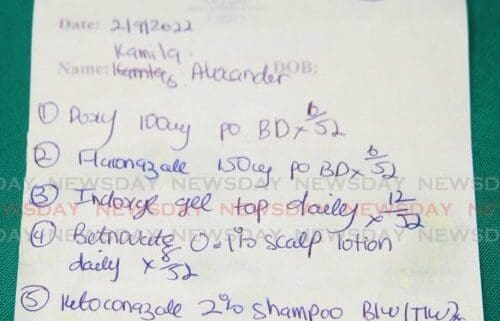 Date: 2/9/2022
Kamila
Name: Alexander DOB:
① Doxy 100mg po BD x 6/52
② Fluconazole 150mg po BD x 6/52
DAY NEWSDAY NEWSDAY NEWSDAY NEWSDAY NEWSD
③ Indoxyl gel top daily x 12/52
④ Betnovate 0.1% scalp lotion
daily x 8/52
⑤ Ketoconazole 2% shampoo BIW/TIW